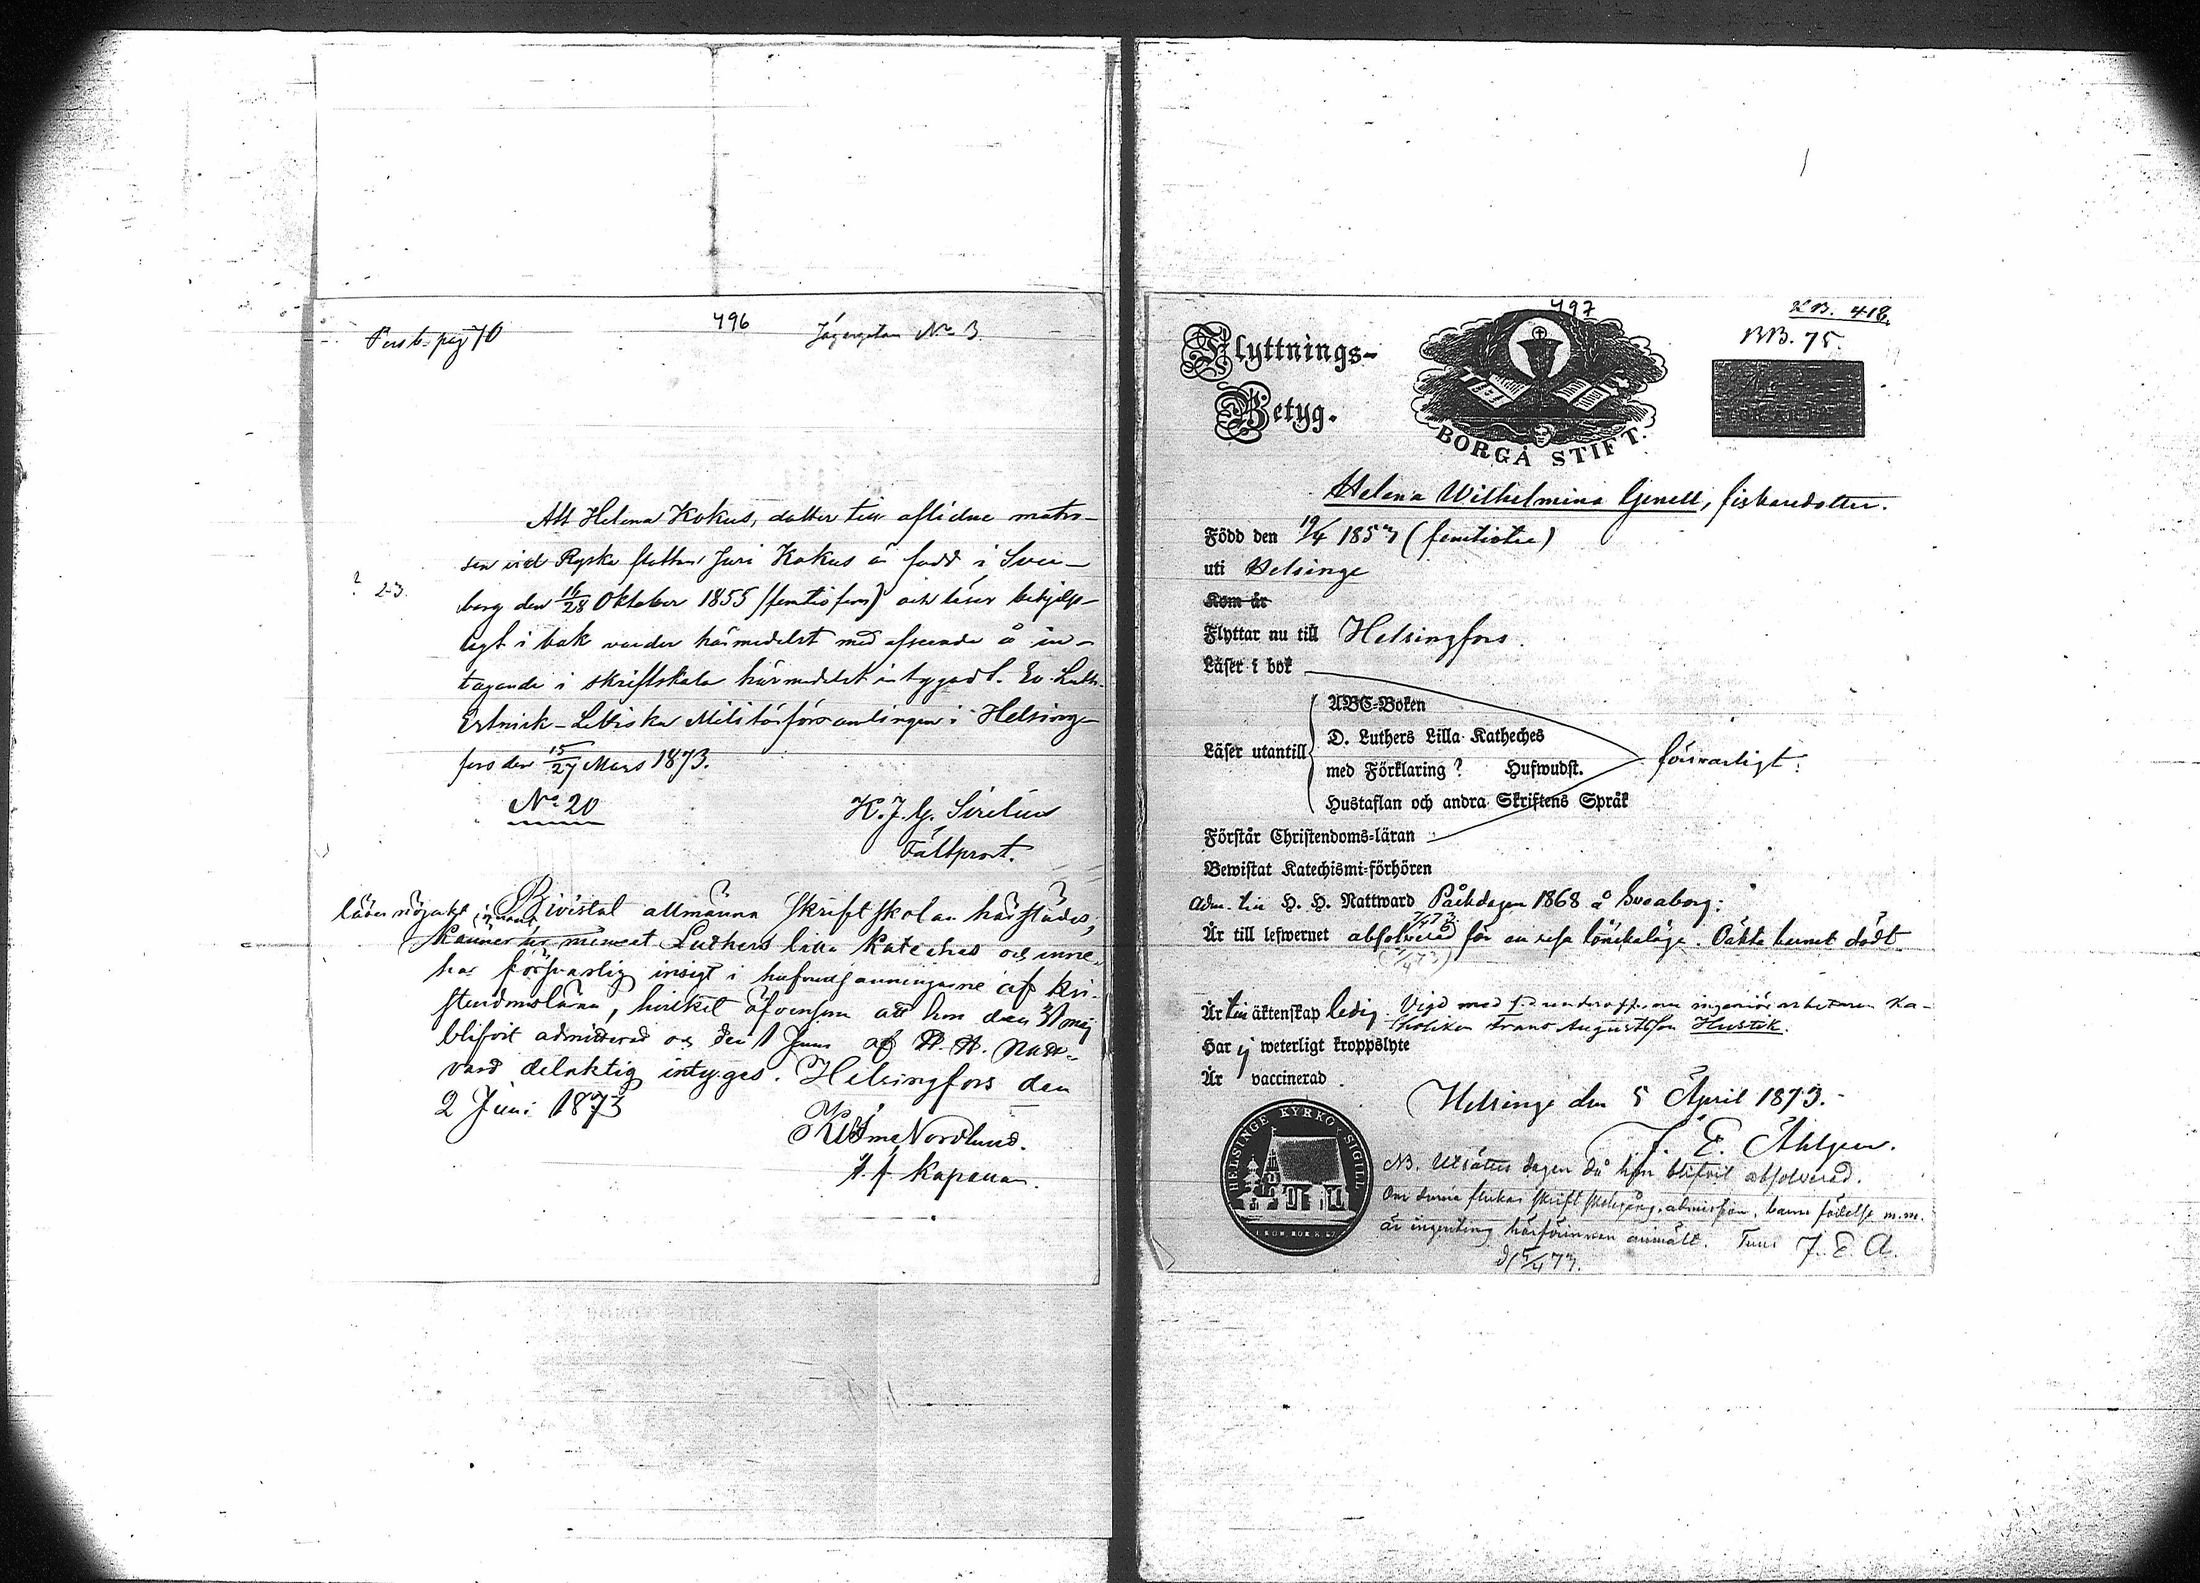 Pers b. pag 70
496
Jägargatan No 3.
Att Helena Kokus, dotter till aflidne matro-
sen vid Ryska flottan Juri Kokus är född i Svea-
borg den 16/28 Oktober 1855 (femtiofem) och läser behjelp-
ligt i bok varder härmedelst med afseende å in-
tagande i skriftskola härmedelst intygadt. Ev. Luth.
Estnisk-Lettiska Militärförsamlingen i Helsing-
fors den 15/27 Mars 1873.
? 23.
No 20
K. J. G. Sirelius
Fältprost.
Bivistat allmänna Skriftskolan härstädes,
läser nöjakt. innan,
Känner Luthers lilla kateches och inne-
har försvarlig insigt i hufvudsanningarne af kri-
stendomslära, hvilket äfvensom att hon den 31 maj
blifvit admitterad och den 1 Juni af H. H. Natt-
vard delaktig intygas. Helsingfors den
2 Juni 1873
Nordlund.
Kapellan.
497
KB. 418.
BB. 75.
Flyttnings-
Betyg.
BORGÅ STIFT.
Helena Wilhelmina Genell, fiskaredotter.
Född den 19/4 1853 (femtiotre)
uti Helsinge
Kom år
Flyttar nu till Helsingfors.
Läser i bok
Läser utantill
ABC-Boken
D. Luthers Lilla Katheches
med Förklaring? Hufwudst.
Hustaflan och andra Skriftens Språk
försvarligt.
Förstår Christendoms-läran
Bewistat Katechismi-förhören
Adm. till H. H. Nattward Påskdagen 1868 å Sveaborg:
Är till lefwernet absolverad för en resa lönskaläge. Oäkta barnet dödt.
Är till äktenskap ledig. Vigd med ingeniörarbetaren Ka-
tholiken Frans Augustsson Hustik.
Har ej weterligt kroppslyte
Är vaccinerad.
Helsinge den 5 April 1873.
J. E. Åhlgren.
HELSINGE KYRKO SIGILL
NB. Utsättes dagen då hon blifvit absolverad.
Om denna flickas skriftskolgång, admission, barns födelse m.m.
är ingenting härförinnan anmält. J. E. Å.
d. 5/4 73.